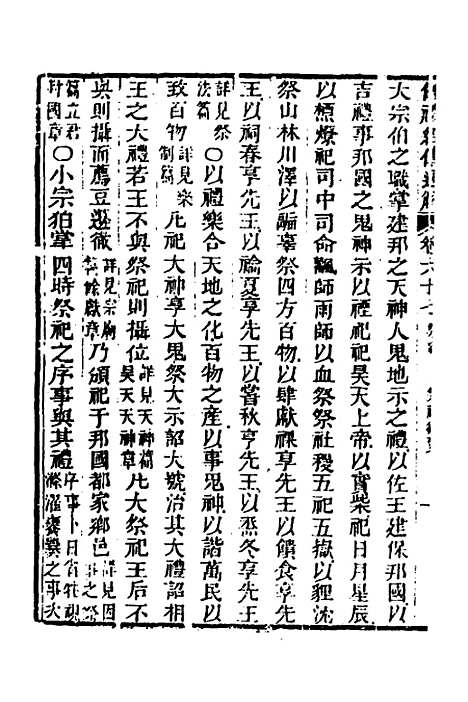 儀禮經傳通解
大宗伯之職掌建邦之天神人鬼地示之禮以佐王建保邦國以
吉禮事邦國之鬼神示以禋祀祀昊天上帝以實柴祀日月星辰
以槱燎祀司中司命飌師雨師以血祭祭社稷五祀五嶽以貍沈
祭山林川澤以疈辜祭四方百物以肆獻祼享先王以饋食享先
王以祠春享先王以禴夏享先王以嘗秋享先王以烝冬享先王
詳見祭法篇〇以禮樂合天地之化百物之產以事鬼神以諧萬民以
致百物詳見樂制篇凡祀大神享大鬼祭大示詔大號治其大禮詔相
王之大禮若王不與祭祀則攝位詳見天神篇昊天天神章凡大祭祀王后不
與則攝而薦豆籩徹詳見宗廟獻章乃頒祀于邦國都家鄉邑詳見因事之祭
篇立君封國章〇小宗伯掌四時祭祀之序事與其禮序事卜日省牲視滌濯饔爨之事次